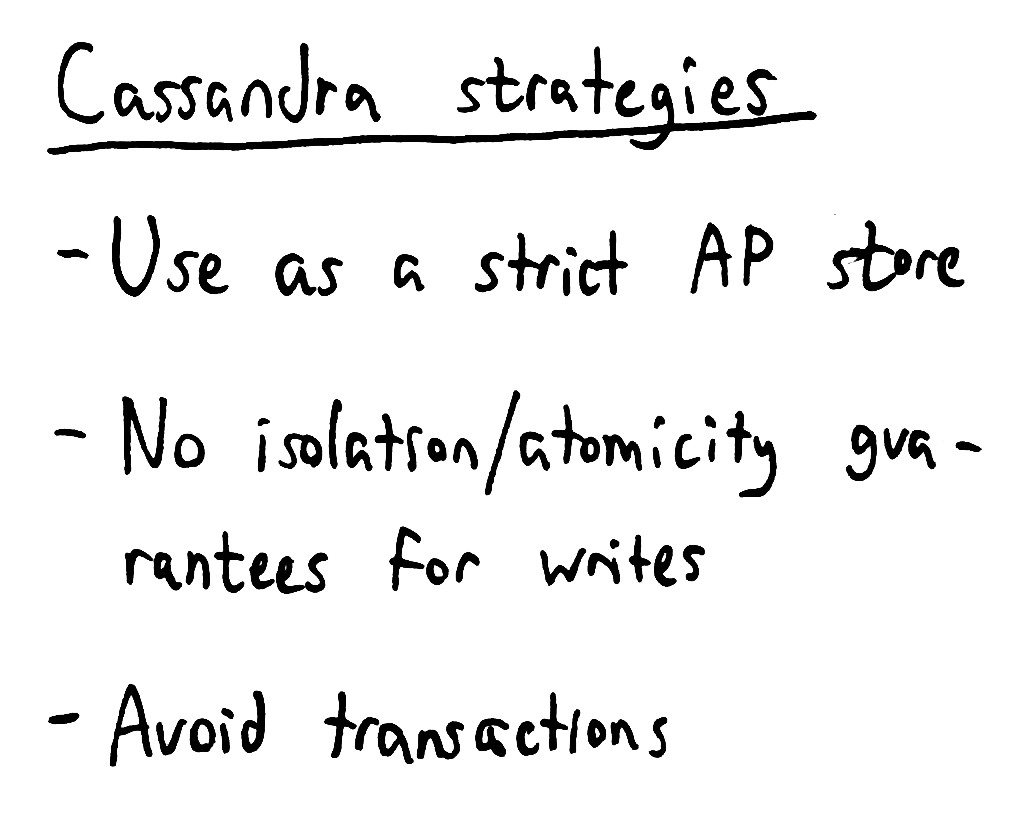 Cassandra strategies
- Use as a strict AP store
- No isolation/atomicity gua-
rantees for writes
- Avoid transactions